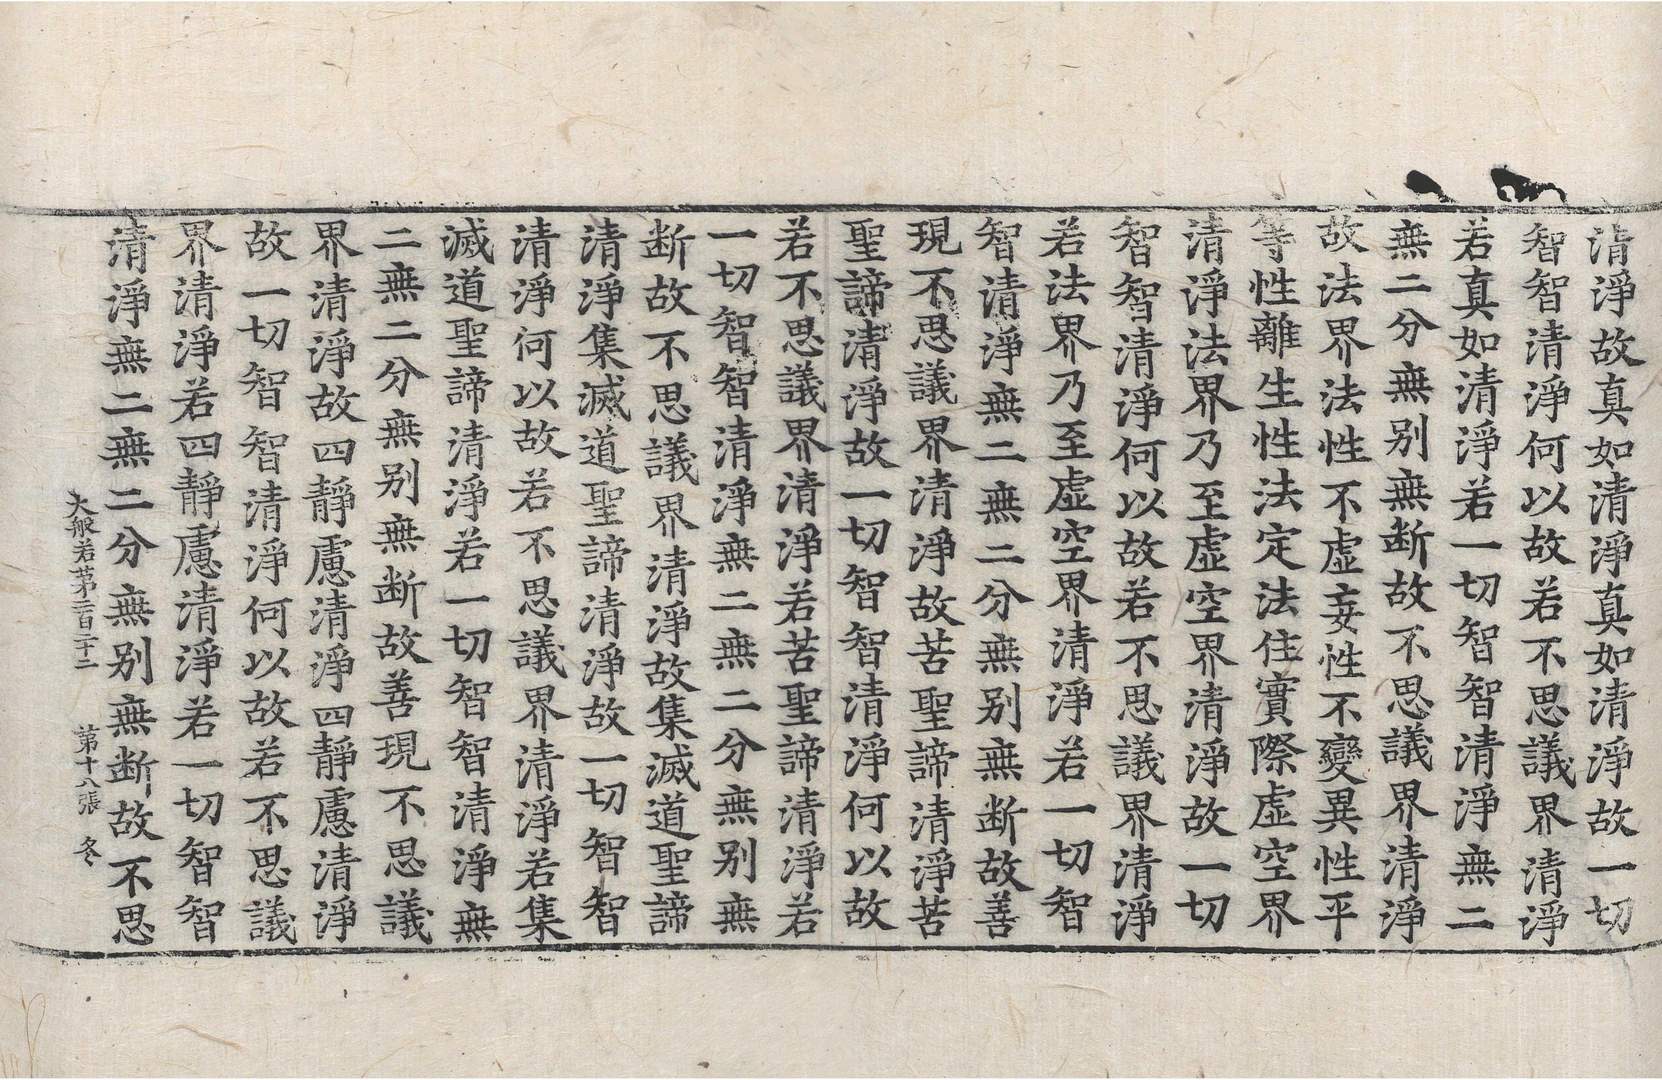 清淨故真如清淨真如清淨故一切
智智清淨何以故若不思議界清淨
若真如清淨若一切智智清淨無二
無二分無别無断故不思議界清淨
故法界法性不虛妄性不變異性平
等性離生性法定法住實際虛空界
清淨法界乃至虛空界清淨故一切
智智清淨何以故若不思議界清淨
若法界乃至虛空界清淨若一切智
智清淨無二無二分無别無断故善
現不思議界清淨故苦聖諦清淨苦
聖諦清淨故一切智智清淨何以故
若不思議界清淨若苦聖諦清淨若
一切智智清淨無二無二分無别無
断故不思議界清淨故集滅道聖諦
清淨集滅道聖諦清淨故一切智智
清淨何以故若不思議界清淨若集
滅道聖諦清淨若一切智智清淨無
二無二分無别無断故善現不思議
界清淨故四靜慮清淨四靜慮清淨
故一切智智清淨何以故若不思議
界清淨若四靜慮清淨若一切智智
清淨無二無二分無别無断故不思
大般若第二百二十二 第十八張 冬